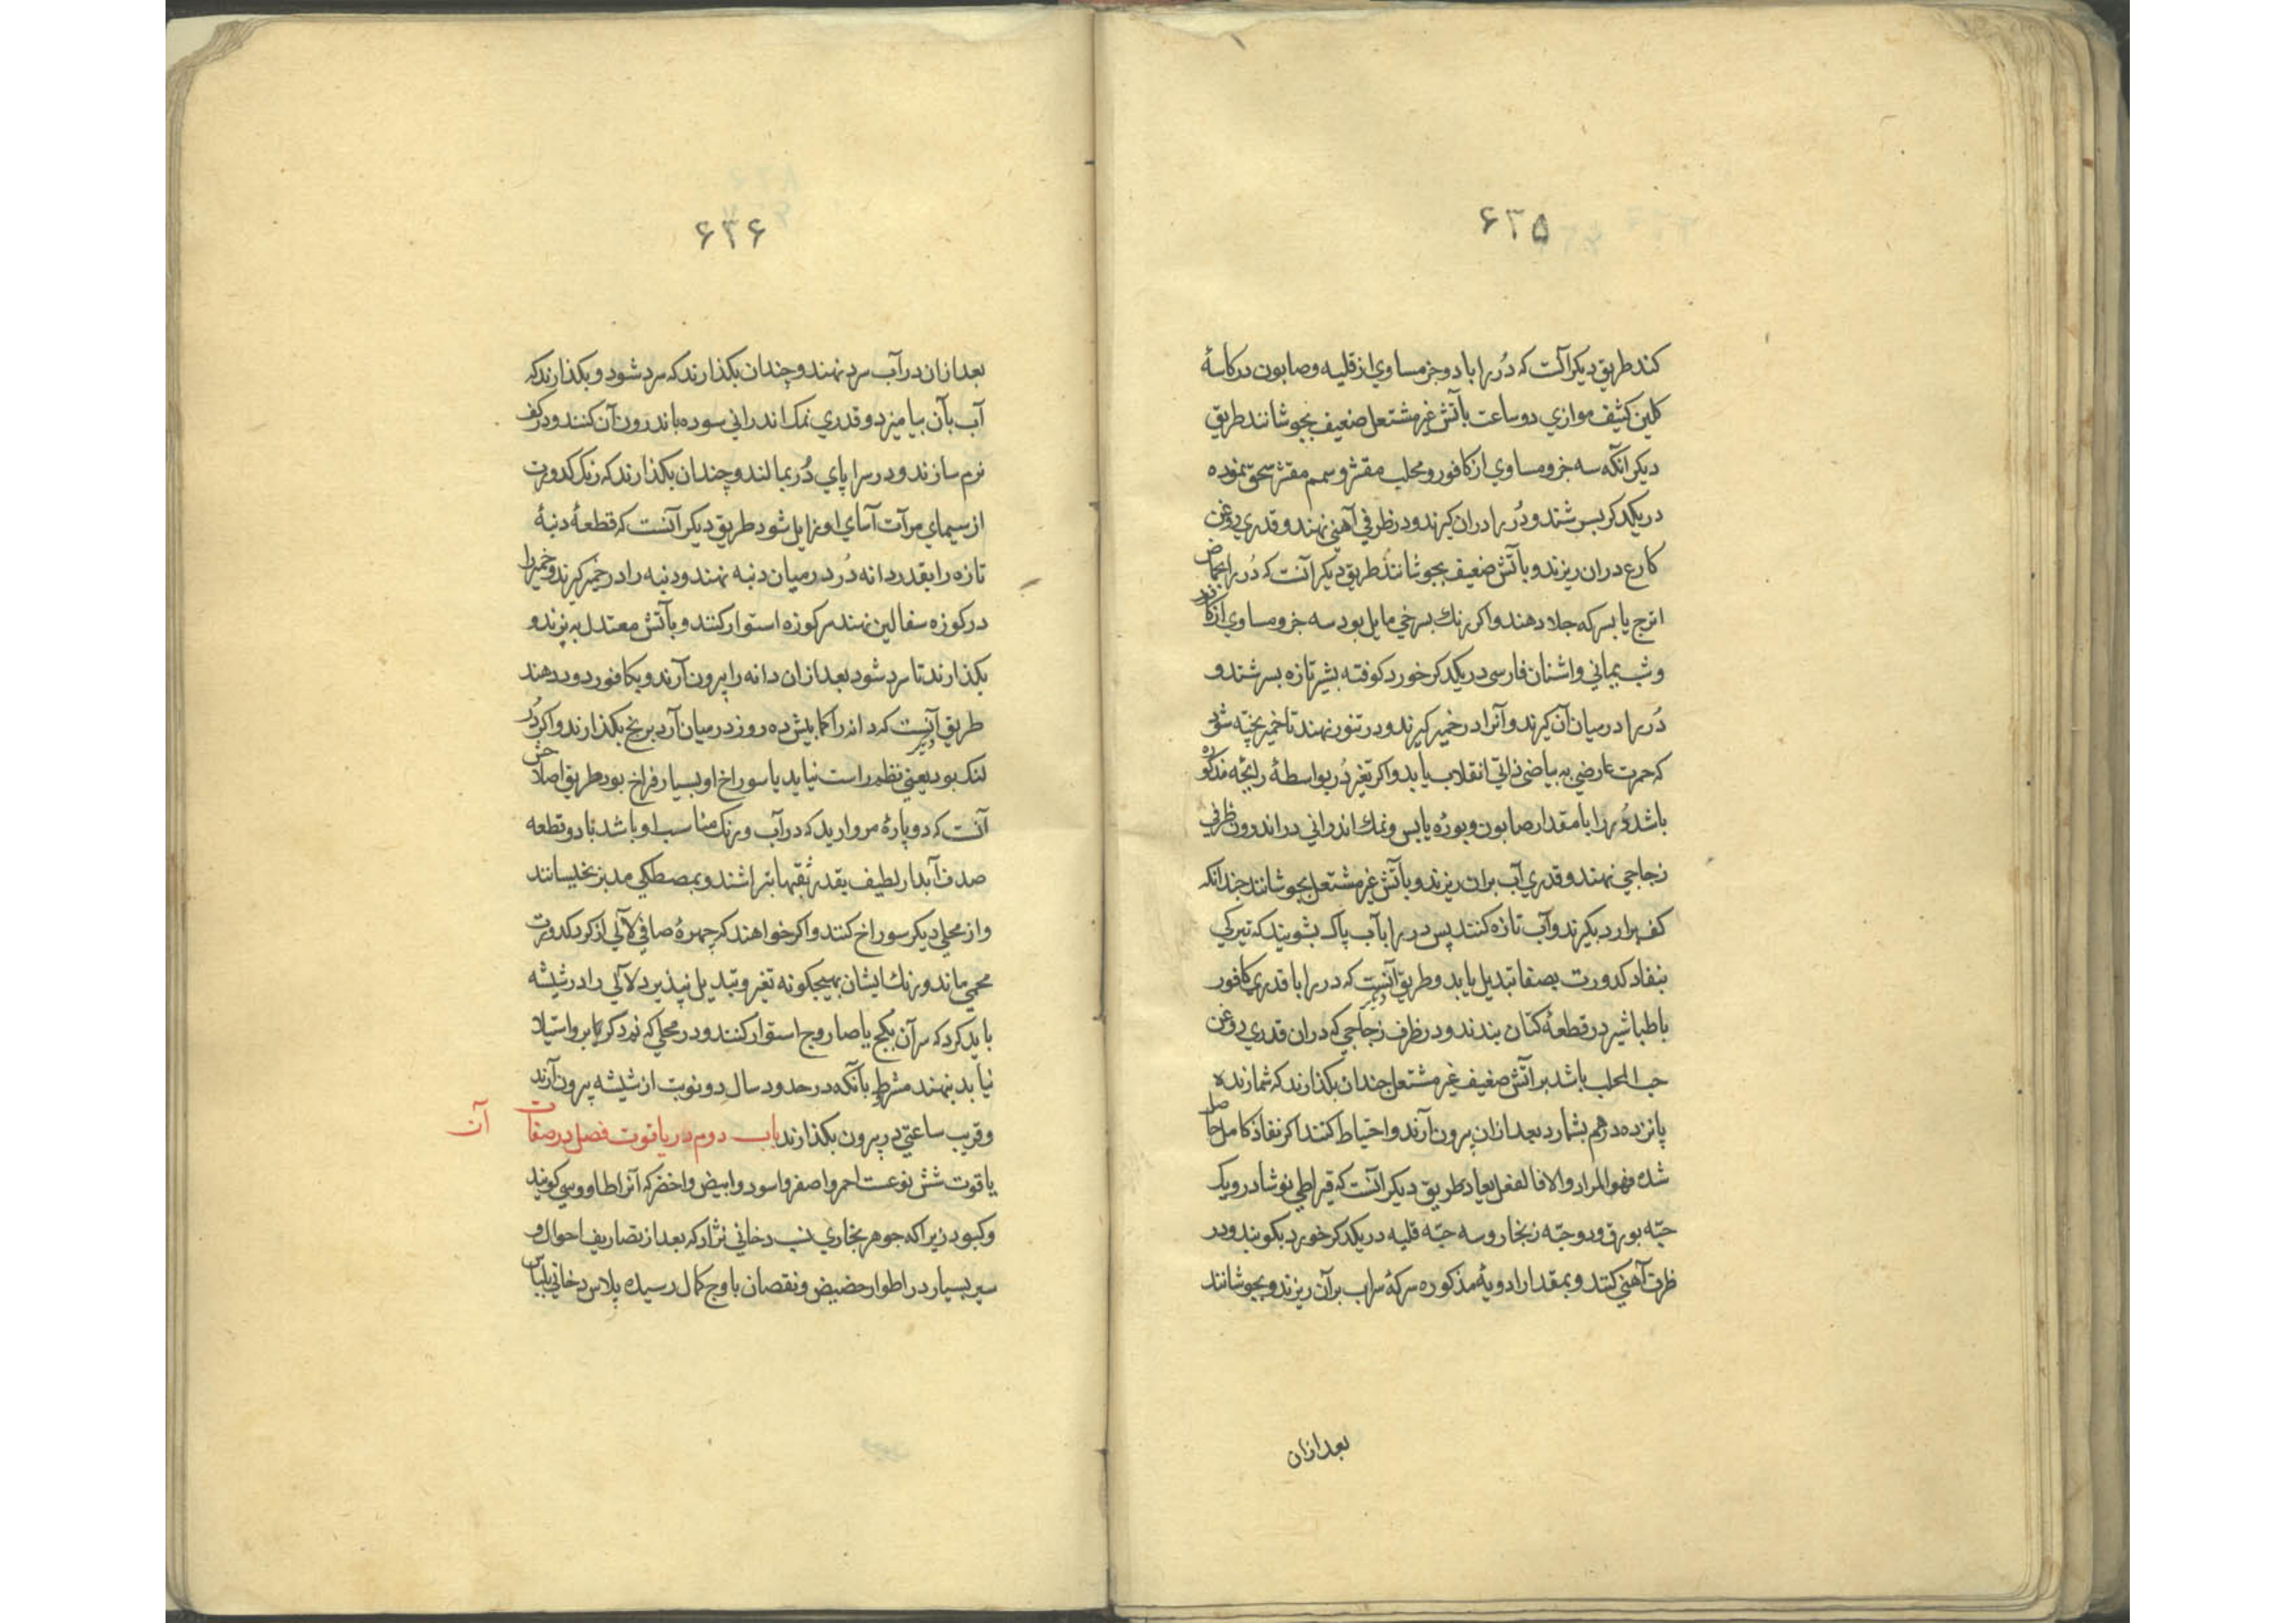 ۶۳۵
کند طریق دیکر آنست که دُر را با دو جزو مساوي از قلیه و صابون در کاسهٔ
کلین کثیف موازي دو ساعت بآتش غیر مشتعل ضعیف بجوشانند طریق
دیکر آنکه سه جزو مساوي از کافور و محلب مقشر و سمسم مقشر سحق نموده
در یکدکر بسرشند و دُر را دران کیرند و در ظرفي آهني نهند و قدري روغن
کارع دران ریزند و بآتش ضعیف بجوشانند طریق دیکر آنست که دُر را بحماض
اترج یا بسرکه جلا دهند و اکر رنك بسرخي مایل بود سه جزو مساوي از کافور
و شب یماني و اشنان فارسی در یکدکر خورد کوفته بشیر تازه بسرشند و
دُر را درمیان آن کیرند و آنرا در خمیر کیرند و در تنور نهند تا خمیر پخته شود
که حمرت عارضي به بیاض ذاتي انقلاب یابد و اکر تغیر دُر بواسطهٔ رایحه مذکوره
باشد دُر را با مقدار صابون و بورهٔ یابس و نمك اندراني در اندرون ظرفي
زجاجي نهند و قدري آب بران ریزند و بآتش غیر مشتعل بجوشانند چندانکه
کف برارد بکیرند و آب تازه کنند پس در را بآب پاک بشویند که تیرکي
بنفاد کدورت بصفا تبدیل یابد و طریق دیکر آنست که در را با قدري کافور
با طباشیر در قطعهٔ کتان بندند و در ظرف زجاجي که دران قدري روغن
حب المحلب باشد بر آتش ضعیف غیر مشتعل چندان بکذارند که شمارنده
پانزده درهم بشمارد بعد ازان بیرون آرند و احتیاط کنند اکر نفاذ کامل حاصل
شده فهو المراد والا فالفعل یعاد طریق دیکر آنست که قیراطي نوشادر و یک
حبّه بورق و دو حبّه زنجار و سه حبّه قلیه در یکدکر خورد بکوبند و در
ظرف آهني کنند و بمقدار ادویهٔ مذکوره سرکهٔ سراب بر آن ریزند و بجوشانند
بعد ازان
۶۳۶
بعد ازان در آب سرد نهند و چندان بکذارند که سرد شود و بکذارند که
آب بآن بیامیزد و قدري نمك اندراني سوده باندرون آن کنند و در کف
نرم سازند و در سراپاي دُر بمالند و چندان بکذارند که زنک کدورت
از سیماي مرآت آساي او زایل شود طریق دیکر آنست که قطعهٔ دنبهٔ
تازه را بقدر دانه دُر درمیان دنبه نهند و دنبه را در خمیر کیرند و خمیر را
در کوزه سفالین نهند سر کوزه استوار کنند و بآتش معتدل به پزند و
بکذارند تا سرد شود بعد ازان دانه را بیرون آرند و بکافور دود دهند
طریق دیکر آنست که دانه را کمابیش ده روز درمیان آرد برنج بکذارند و اکر دُر
لنک بود یعني نظم راست نیاید یا سوراخ او بسیار فراخ بود طریق اصلاحش
آنست که دو پارهٔ مروارید که در آب و رنک مناسب او باشد یا دو قطعه
صدف آبدار لطیف بقدر ثقبها بتراشند و بمصطکي مدبر بخیسانند
و از محلي دیکر سوراخ کنند و اکر خواهند که چهرهٔ صافي لآلي از کرد کدورت
محمي ماند و رنك ایشان بهیجکونه تغیر و تبدیل نپذیرد لآلي را در شیشه
باید کرد که سر آن بکج یا صاروج استوار کنند و در محلي که نم و کرما برو استیلا
نیابد بنهند مشروط بآنکه در حدود سال دو نوبت از شیشه بیرون آرند
و قریب ساعتي در بیرون بکذارند باب دوم در یاقوت فصل در صفات آن
یاقوت شش نوعست احمر و اصفر و اسود و ابیض و اخضر که آنرا طاووسي کویند
و کبود زیرا که جوهر بخاري نسب دخاني نژاد که بعد از تصاریف احوال و
سیر بسیار در اطوار حضیض و نقصان باوج کمال رسیده پلاس دخاني بلباس